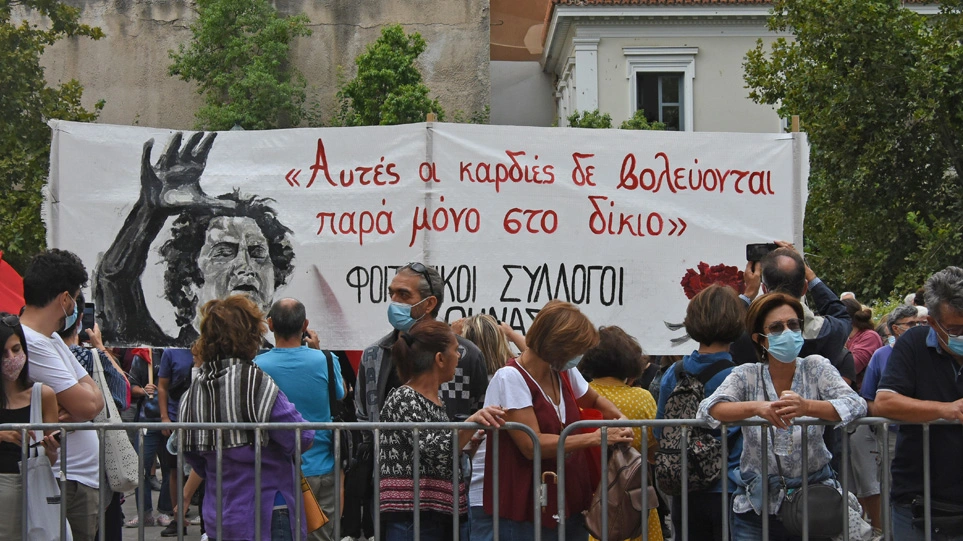 «Αυτές οι καρδιές δε βολεύονται
παρά μόνο στο δίκιο»
ΣΥΛΛΟΓΟΙ